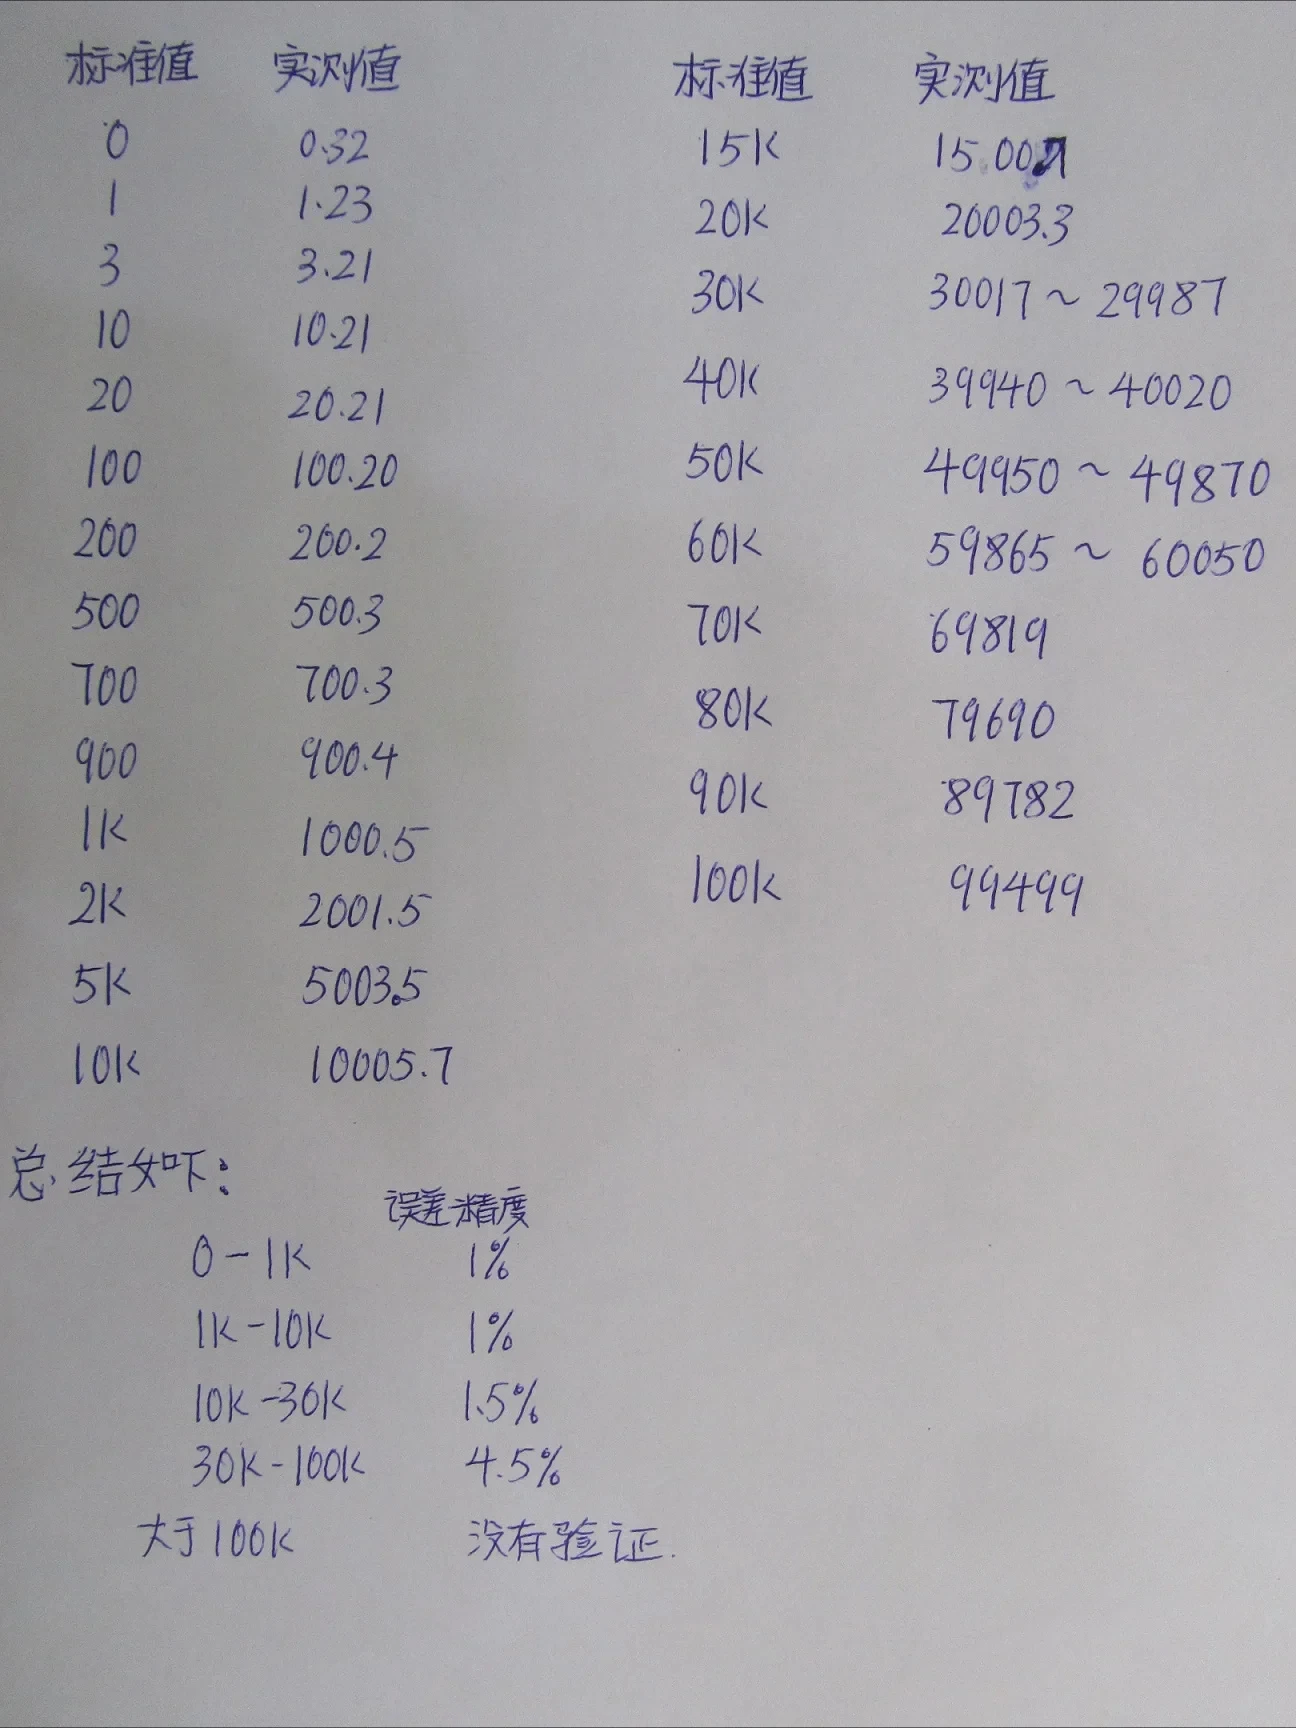 标准值 实测值
0 0.32
1 1.23
3 3.21
10 10.21
20 20.21
100 100.20
200 200.2
500 500.3
700 700.3
900 900.4
1K 1000.5
2K 2001.5
5K 5003.5
10K 10005.7
标准值 实测值
15K
20K 20003.3
30K 30017~29987
40K 39940~40020
50K 49950~49870
60K 59865~60050
70K 69819
80K 79690
90K 89782
100K 99499
总结如吓:
误差精度
0-1K 1%
1K-10K 1%
10K-30K 1.5%
30K-100K 4.5%
大于100K 没有验证.